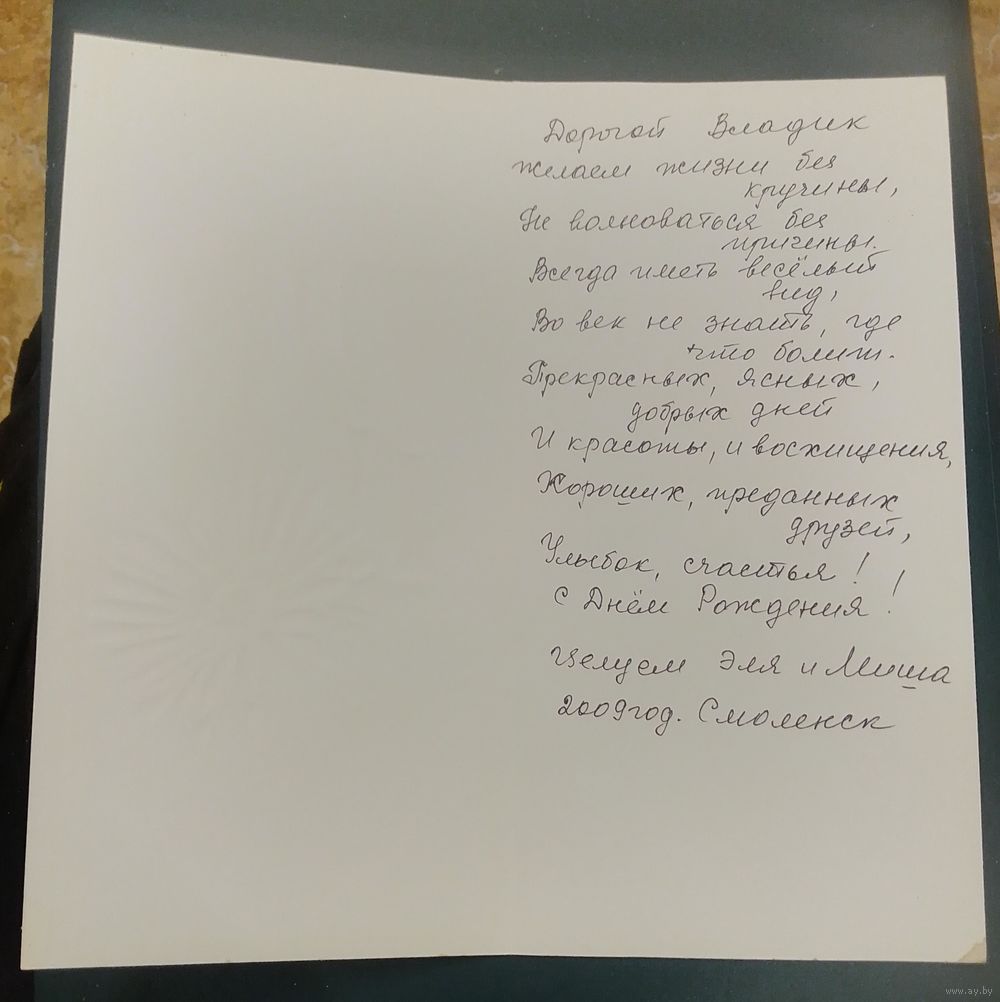 Дорогой Владик
желаем жизни без
кручины,
Не волноваться без
причины.
Всегда иметь весёлый
вид,
Во век не знать, где
что болит.
Прекрасных, ясных,
добрых дней
И красоты, и восхищения,
Хороших, преданных
друзей,
Улыбок, счастья!
С Днём Рождения!
Целуем Эля и Миша
2009год. Смоленск
www.ay.by